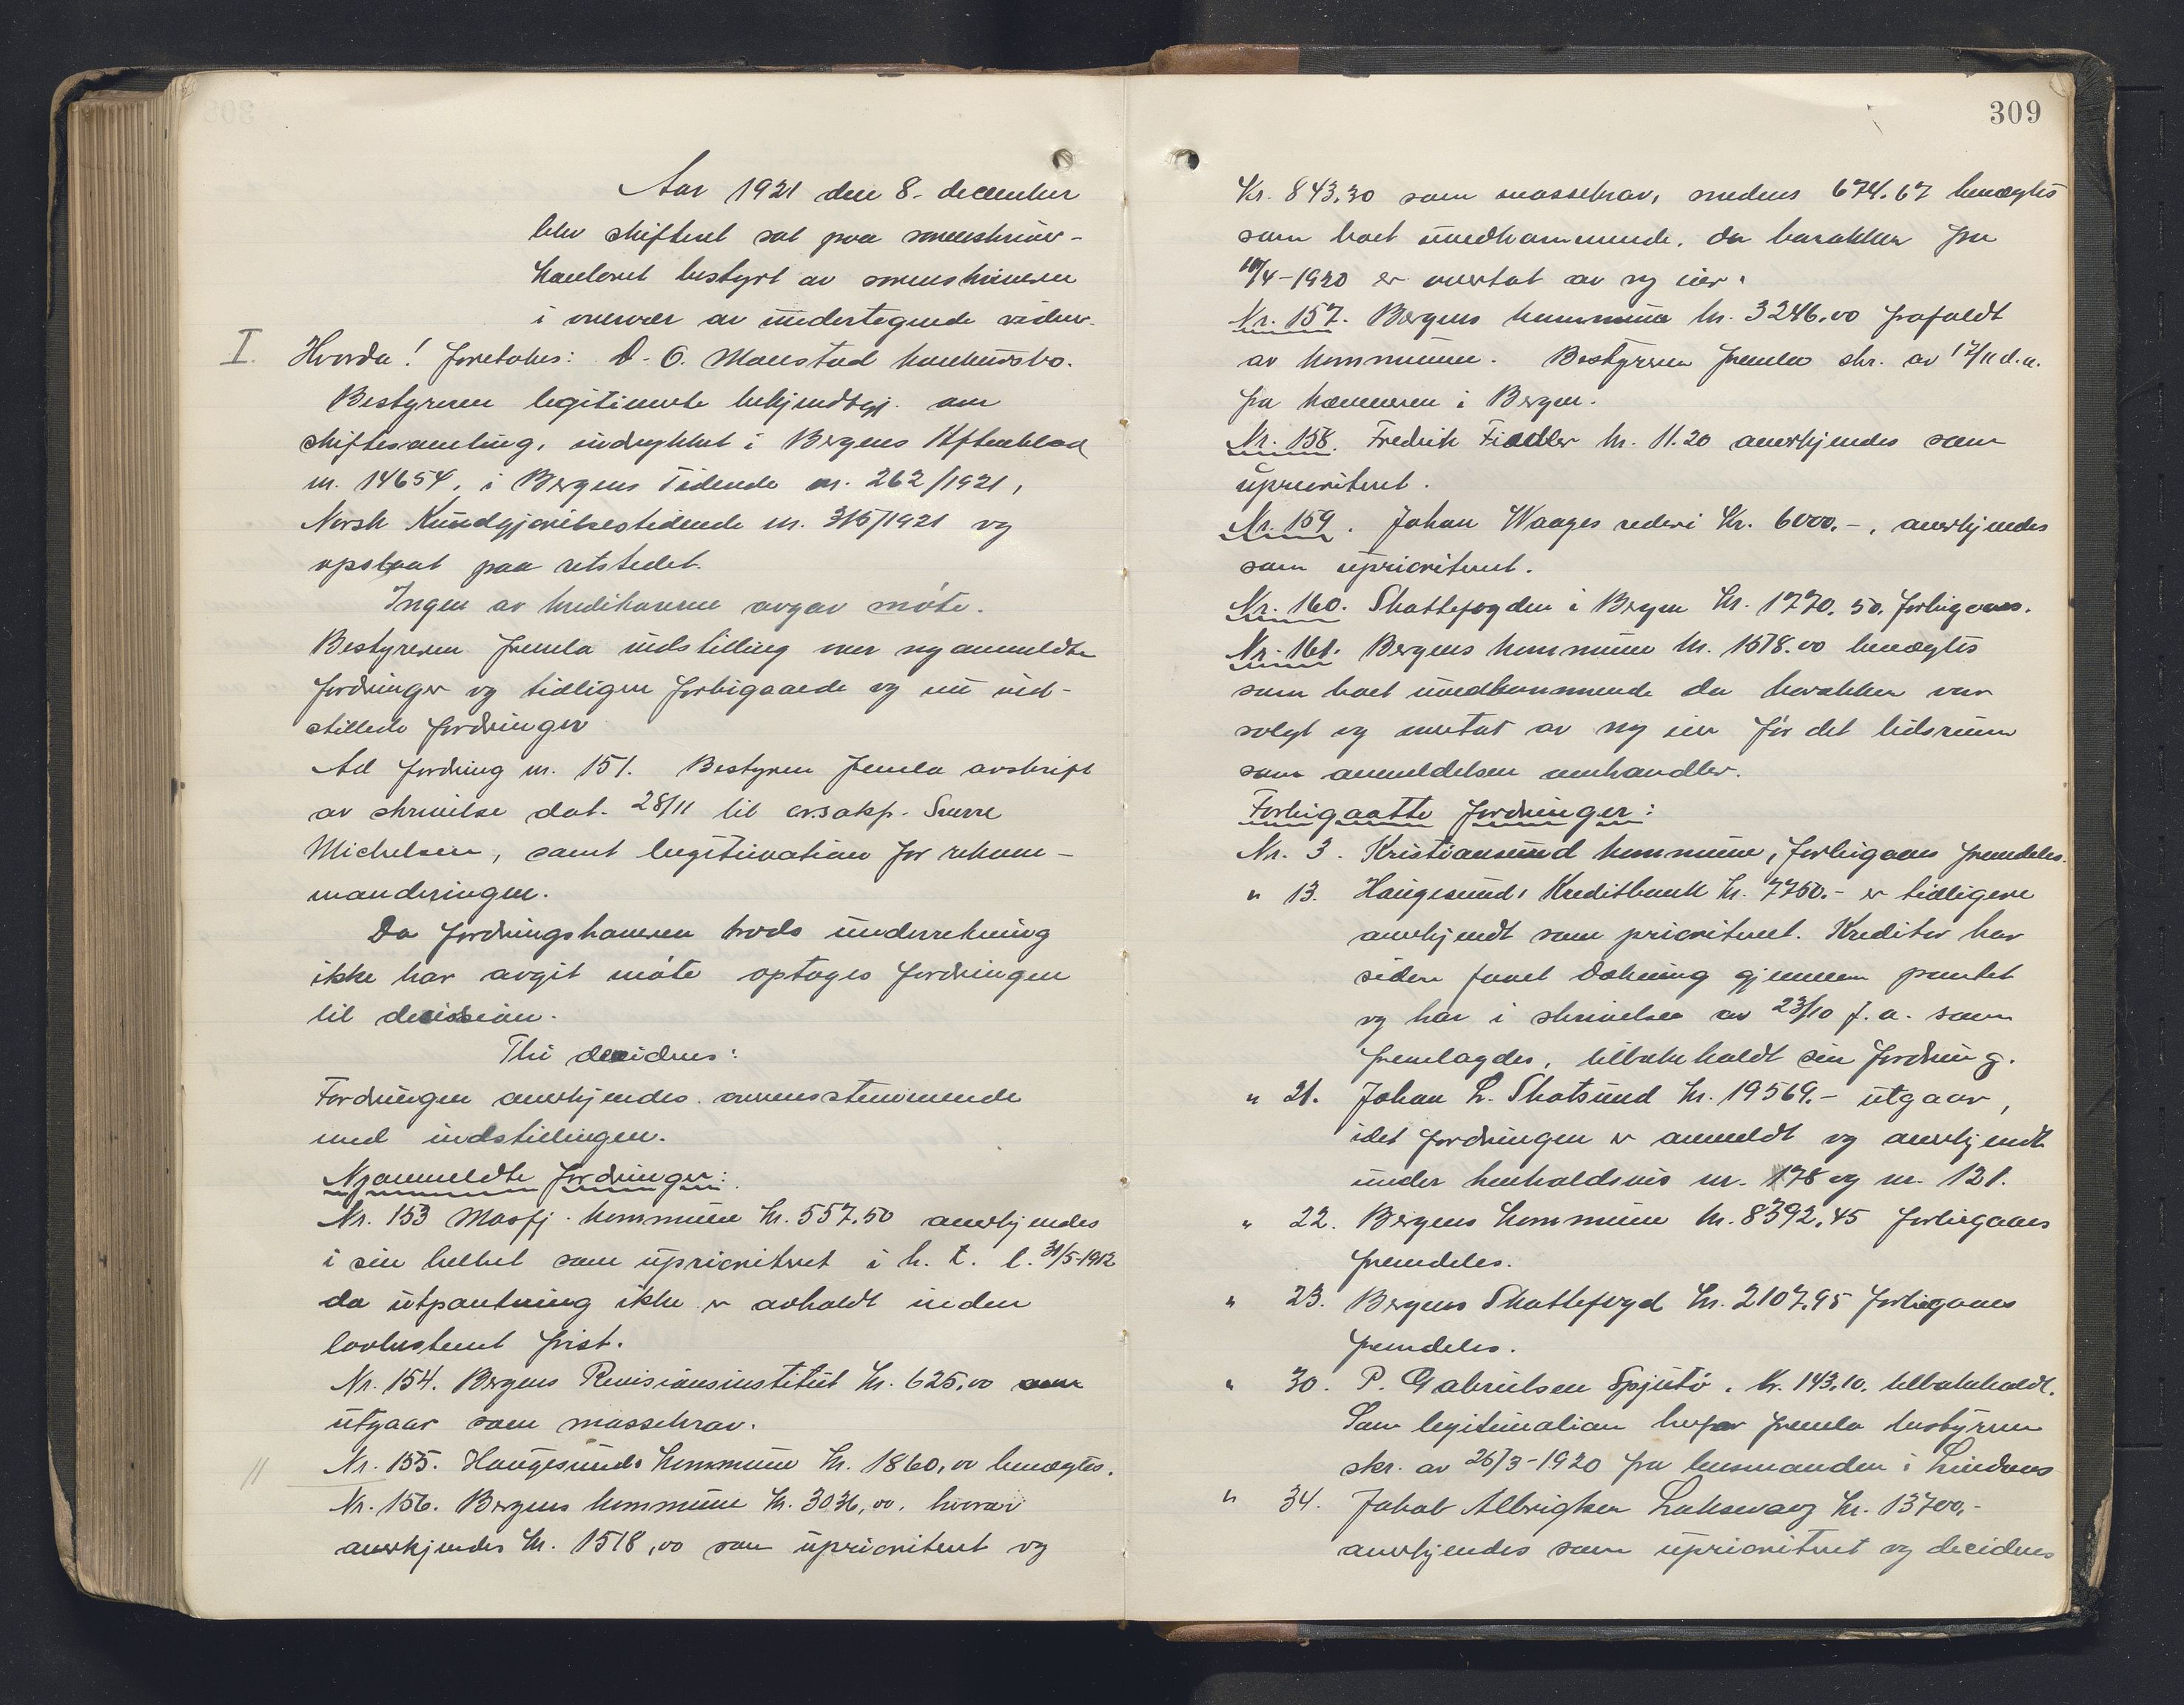 Aar 1921 den 8. december
blev skifteret sat paa sorenskriver-
kontoret bestyrt av sorenskriveren
i overvær av undertegnede vidner.
I. Hvorda! foretokes: D. O. Monstad konkursbo.
Bestyreren legitimerte bekjendtgj. om
skiftesamling, indrykket i Bergens Aftenblad
nr. 14654, i Bergens Tidende nr. 262/1921,
Norsk Kundgjørelsestidende nr. 315/1921 og
opslaat paa retstedet.
Ingen av kreditorerne avgav møte.
Bestyreren fremla indstilling over nyanmeldte
fordringer og tidligere forbigaaede og nu ind-
stillede fordringer
Ad fordring nr. 151. Bestyreren fremla avskrift
av skrivelse dat. 28/11 til o.r.sakf. Sverre
Michelsen, samt legitimation for rekom-
manderingen.
Da fordringshaveren trods underretning
ikke har avgit møte optages fordringen
til decission.
Thi decideres:
Fordringen anerkjendes overensstemmende
med indstillingen.
Nyanmeldte fordringer:
Nr. 153 Masfj. kommune kr. 557.50 anerkjendes
i sin helhet som uprioritert i h. t. l. 31/5-1912
da utpantning ikke er avholdt inden
lovbestemt frist.
Nr. 154. Bergens Revisionsinstitut kr. 625,00
utgaar som massekrav.
11 Nr. 155. Haugesunds kommune kr. 1860,00 benegtes.
Nr. 156. Bergens kommune kr. 3036,00, hvorav
anerkjendes kr. 1518,00 som uprioritert og
309
Kr. 843.30 som massekrav, medens 674.67 benegtes
som boet uvedkommende, da barakken fra
10/4-1920 er overtat av ny eier.
Nr. 157. Bergens kommune kr. 3246,00 frafaldt
av kommunen. Bestyreren fremla skr. av 17/11 d.a.
fra kæmneren i Bergen.
Nr. 158. Fredrik Fiedler kr. 11.20 anerkjendes som
uprioritert.
Nr. 159. Johan Waages rederi Kr. 6000.-, anerkjendes
som uprioritert.
Nr. 160. Skattefogden i Bergen kr. 1770.50, forbigaaes.
Nr. 161. Bergens kommune kr. 1518.00 benegtes
som boet uvedkommende da barakken var
solgt og overtat av ny eier før det tidsrum
som anmeldelsen omhandler.
Forbigaatte fordringer:
Nr. 3. Kristiansund kommune, forbigaaes fremdeles.
" 13. Haugesunds Kreditbank kr. 7750.- er tidligere
anerkjendt som prioritert. Kreditor har
siden faaet dækning gjennem pantet
og har i skrivelse av 23/10 f.a. som
fremlagdes, tilbakekaldt sin fordring.
" 21. Johan L. Skotsund kr. 19569.- utgaar,
idet fordringen er anmeldt og anerkjendt
under henholdsvis nr. 78 og nr. 121.
" 22. Bergens kommune kr. 8392,45 forbigaaes
fremdeles.
" 23. Bergens Skattefogd kr. 2107.95 forbigaaes
fremdeles.
" 30. P. Gabrielsen Spjutø, kr. 143.10, tilbakekaldt.
Som legitimation herfor fremla bestyreren
skr. av 26/3-1920 fra lensmanden i Lindaas
" 34. Jakob Albrigtsen Laksevaag kr. 13700,-
anerkjendes som uprioritert og decideres